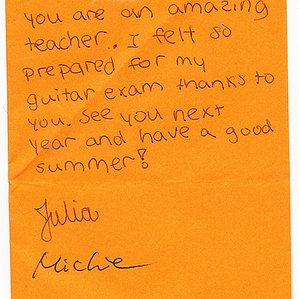 you are an amazing
teacher. I felt so
prepared for my
guitar exam thanks to
you. See you next
year and have a good
summer!
Julia